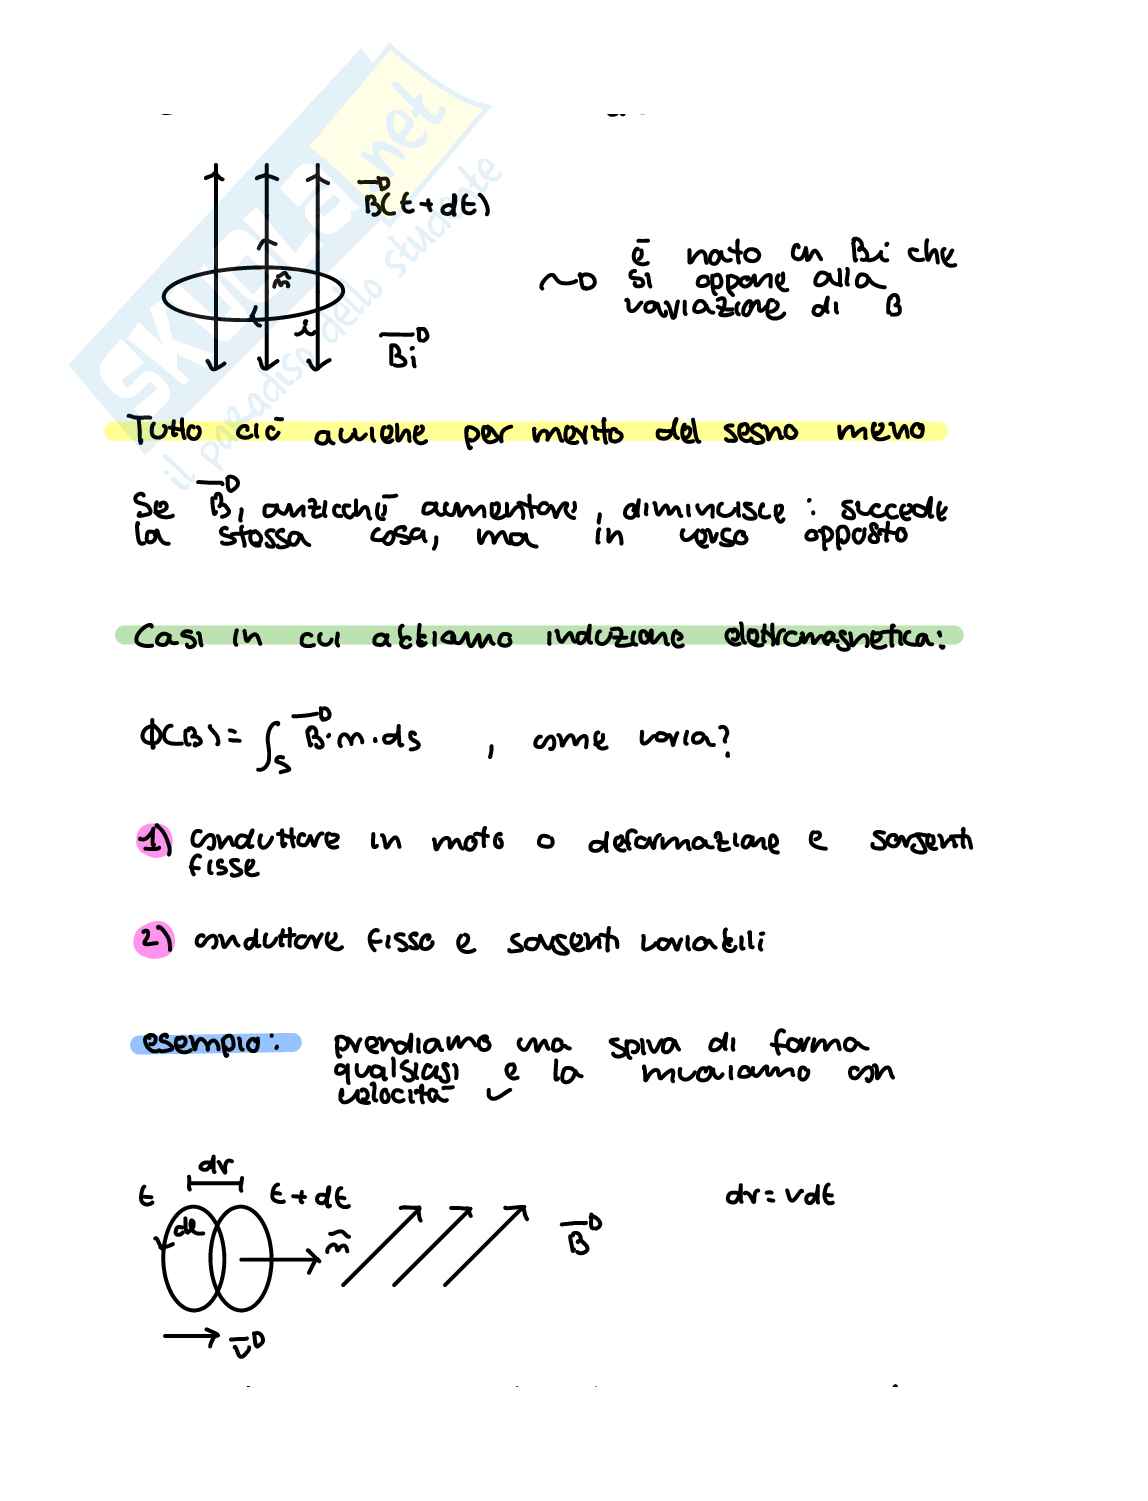 SKUOLA.net
il paradiso dello studente
B(t+dt)
n̂
i
i
Bi
~> è nato un Bi che
si oppone alla
variazione di B
Tutto ciò avviene per merito del segno meno
Se B, anzicchè aumentare, diminuisce: succede
la stessa cosa, ma in verso opposto
Casi in cui abbiamo induzione elettromagnetica:
Φ(B) = ∫s B·n·ds , come varia?
1) conduttore in moto o deformazione e sorgenti
fisse
2) conduttore fisso e sorgenti variabili
esempio: prendiamo una spira di forma
qualsiasi e la muoviamo con
velocità v
dr
t
t+dt
dl
n̂
B
dr = vdt
v